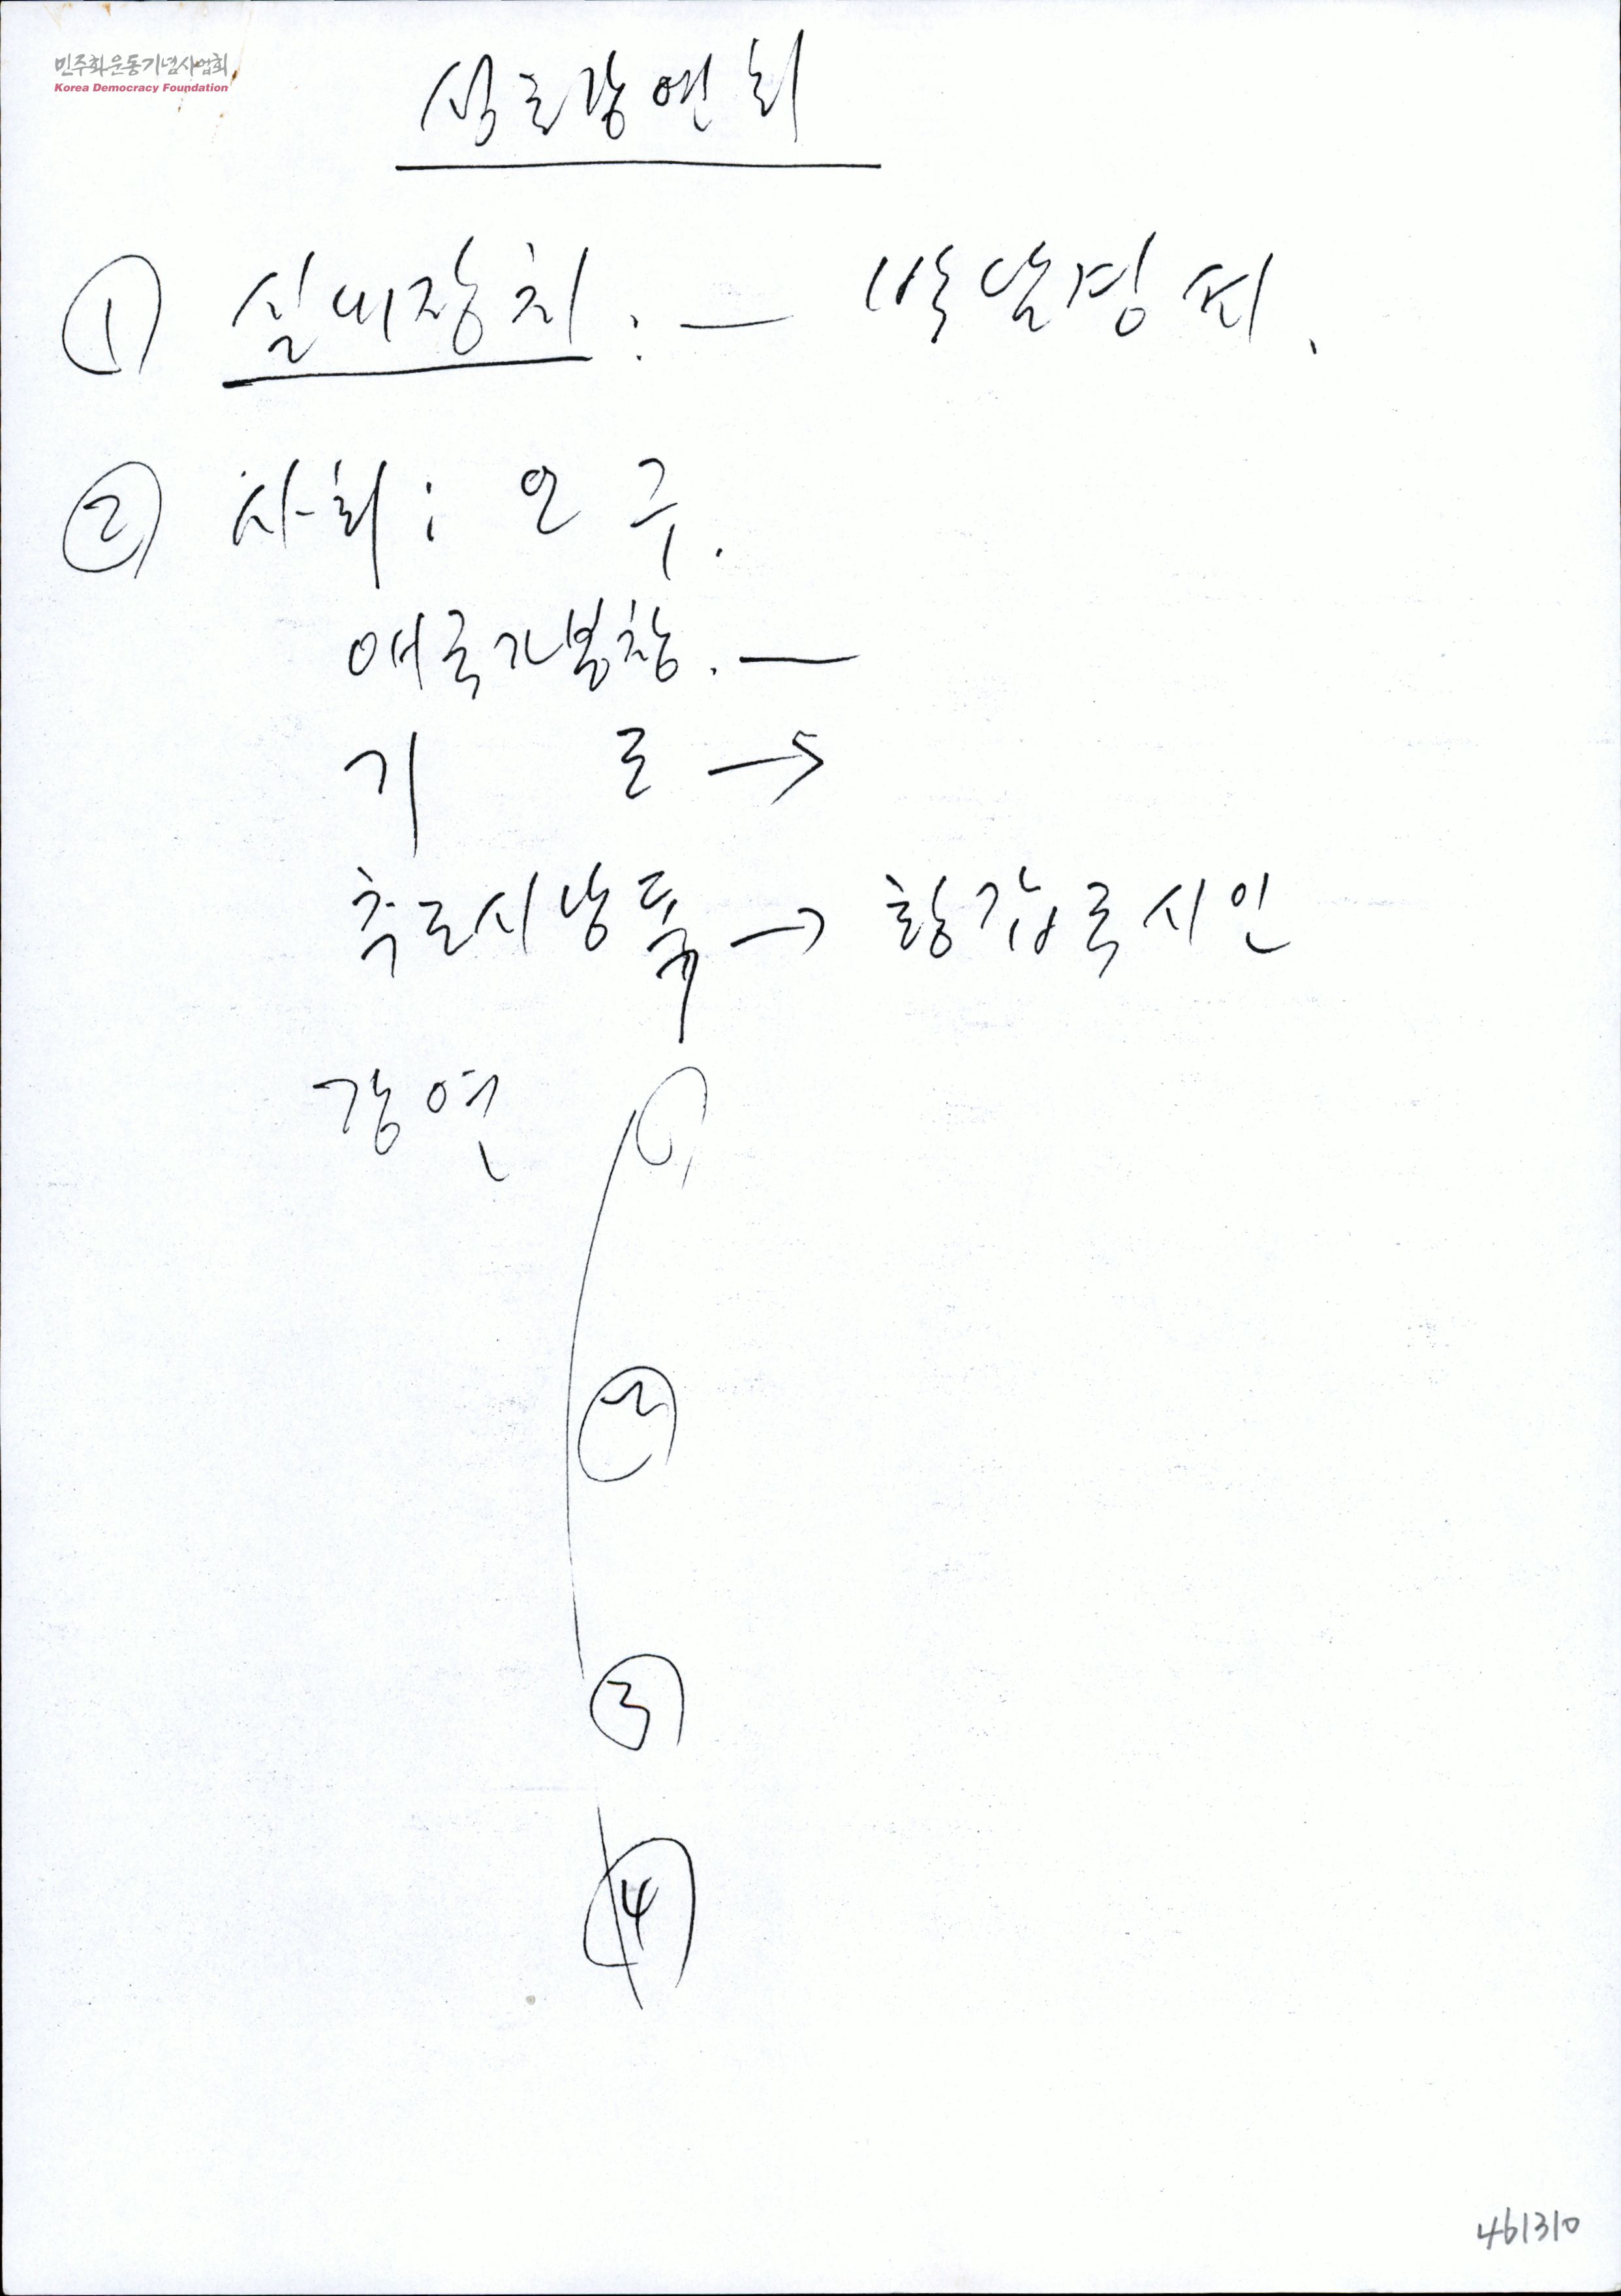 민주화운동기념사업회
Korea Democracy Foundation
강연회
① 실내장치 : —
② 사회 : 오 구.
애국가봉창. —
기 도 →
추도시낭독 → 황갑주시인
강연 ①
②
③
④
461310